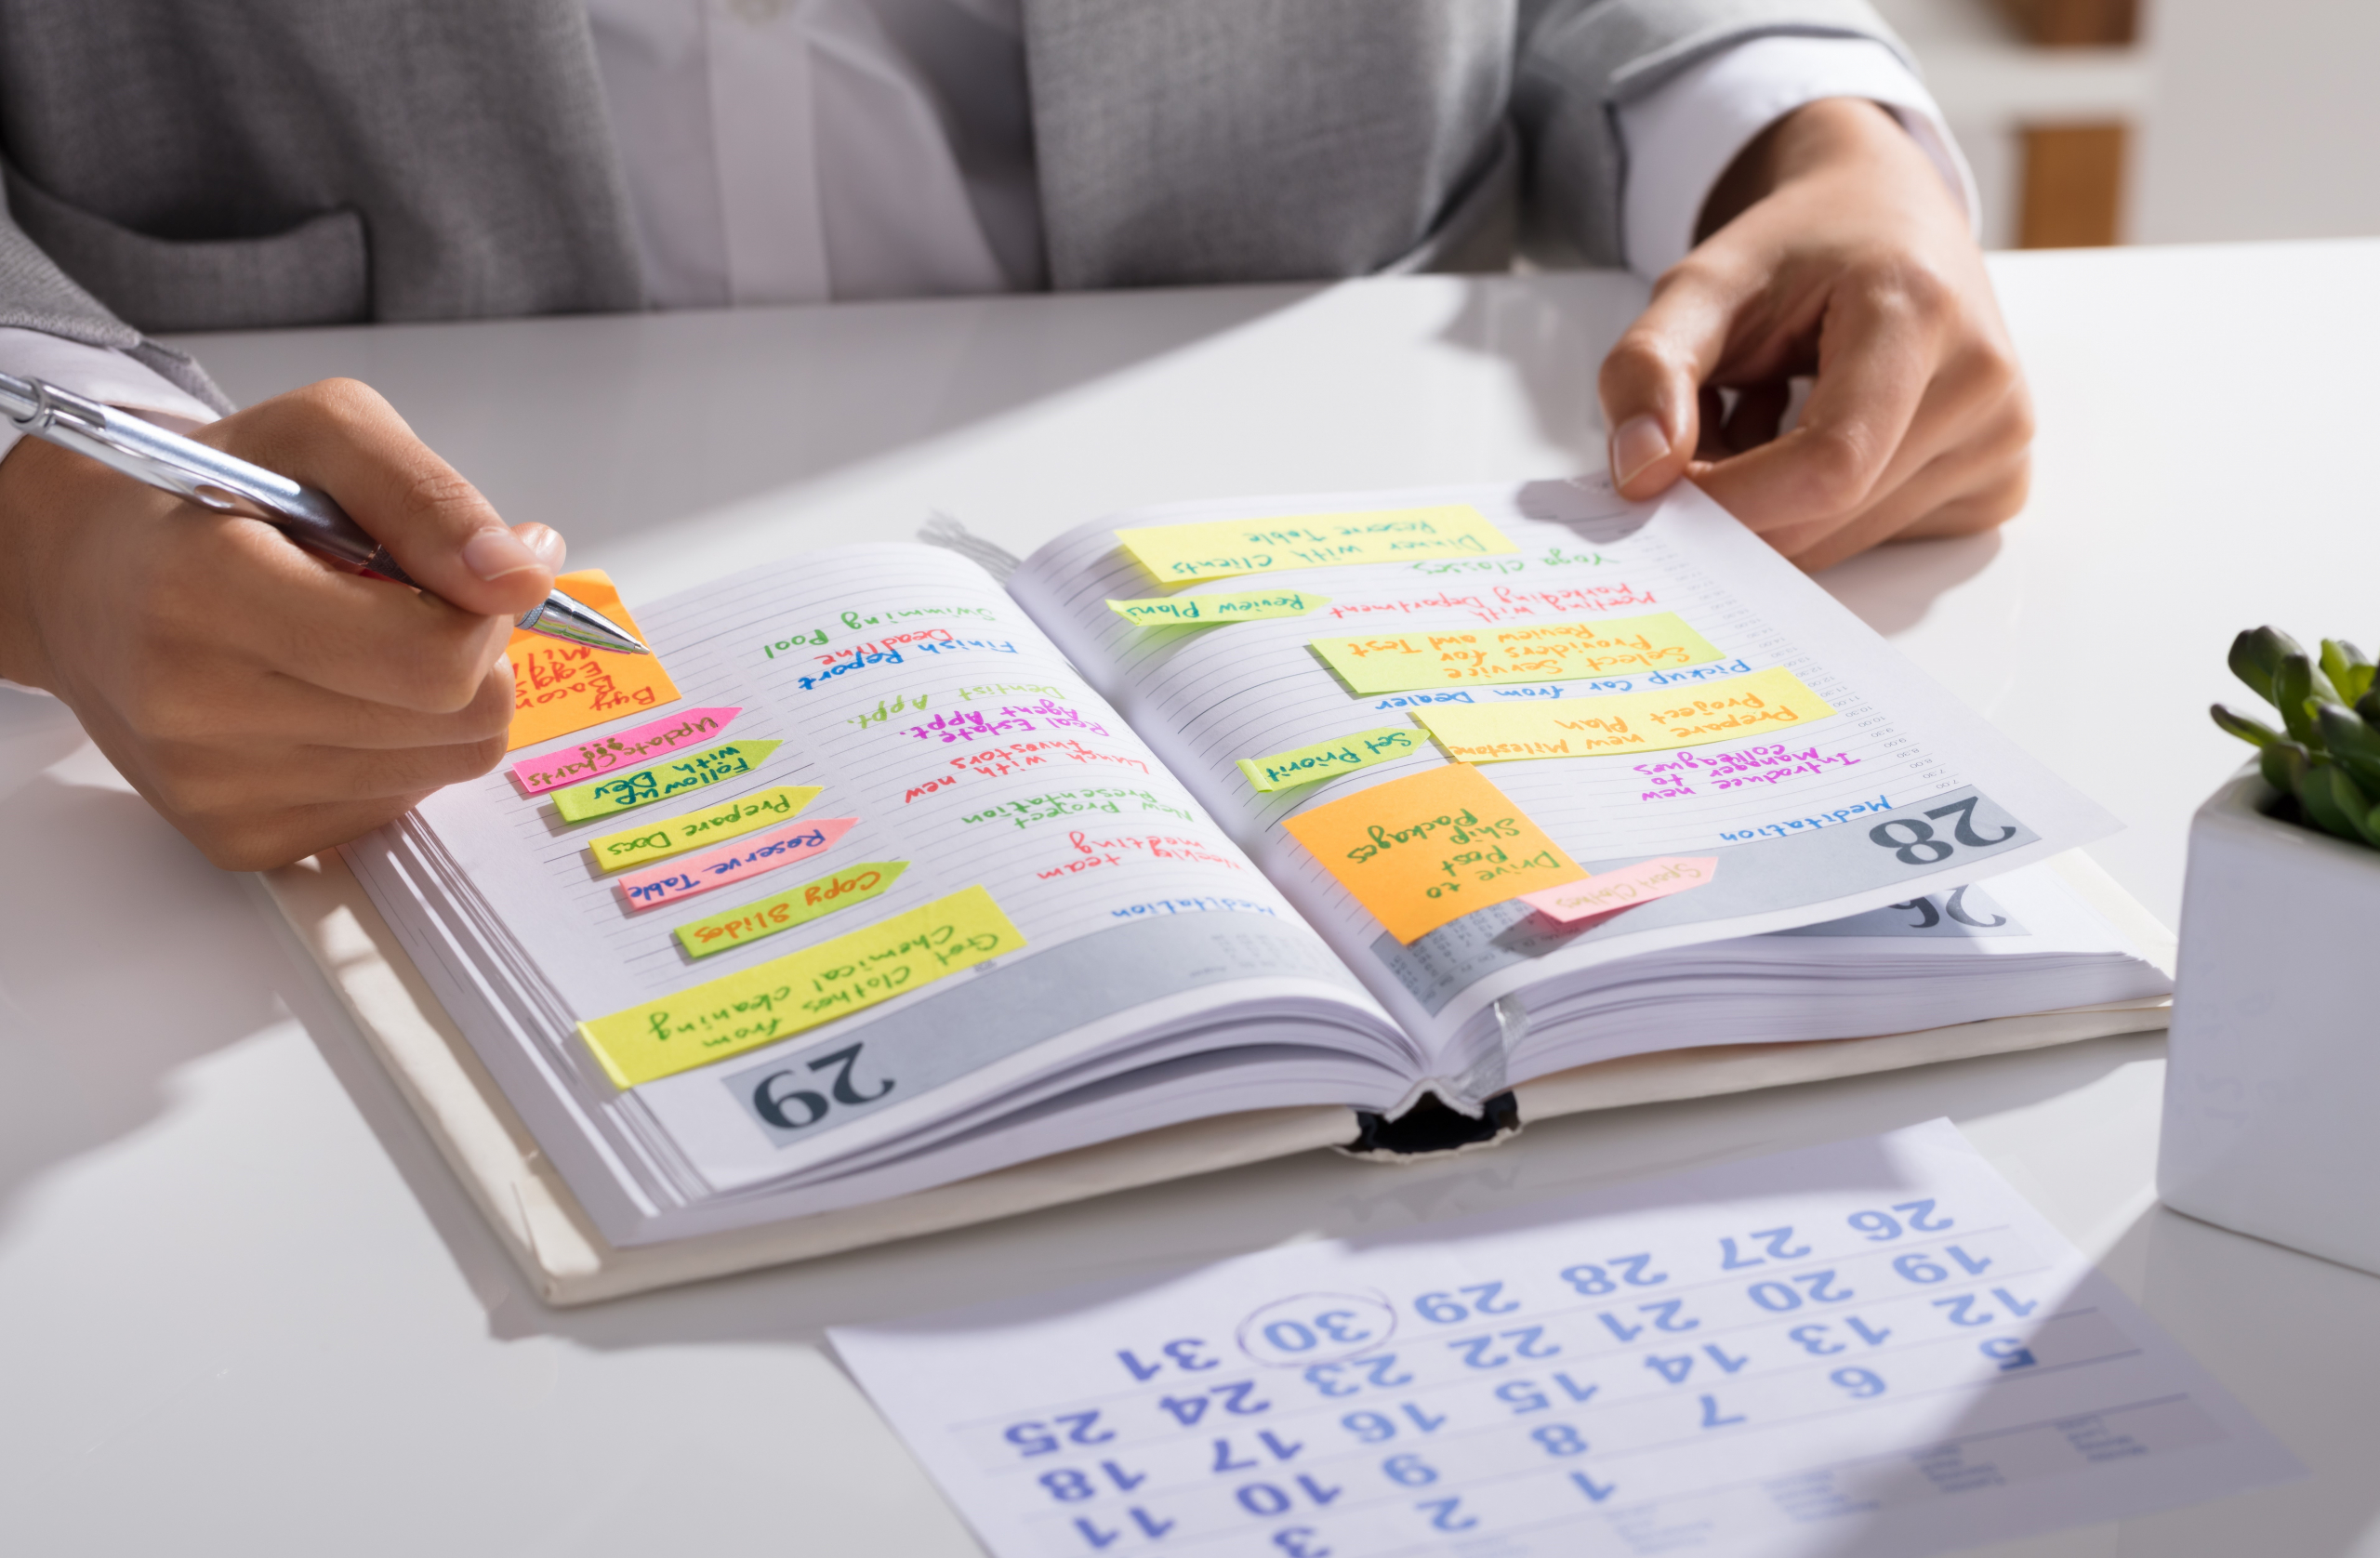 28
Meditation
Introduce new
Manager to
colleagues
Prepare new Milestone
Project Plan
Pickup Car from Dealer
Select Service
Providers for
Review and Test
Meeting with
Marketing Department
Yoga Classes
Dinner with Clients
Reserve Table
Sport Clothes
Drive to
Post
Ship
Packages
Set Priorit
Review Plans
26
29
Meditation
Weekly team
meeting
New Project
Presentation
Lunch with new
Investors
Real Estate
Agent Appt.
Dentist Appt.
Finish Report
Deadline
Swimming Pool
Get Clothes from
Chemical cleaning
Copy Slides
Reserve Table
Prepare Docs
Follow up
with Dev
Update Charts
Buy
Bacon
Eggs
1 2 3
5 6 7 8 9 10 11
12 13 14 15 16 17 18
19 20 21 22 23 24 25
26 27 28 29 30 31